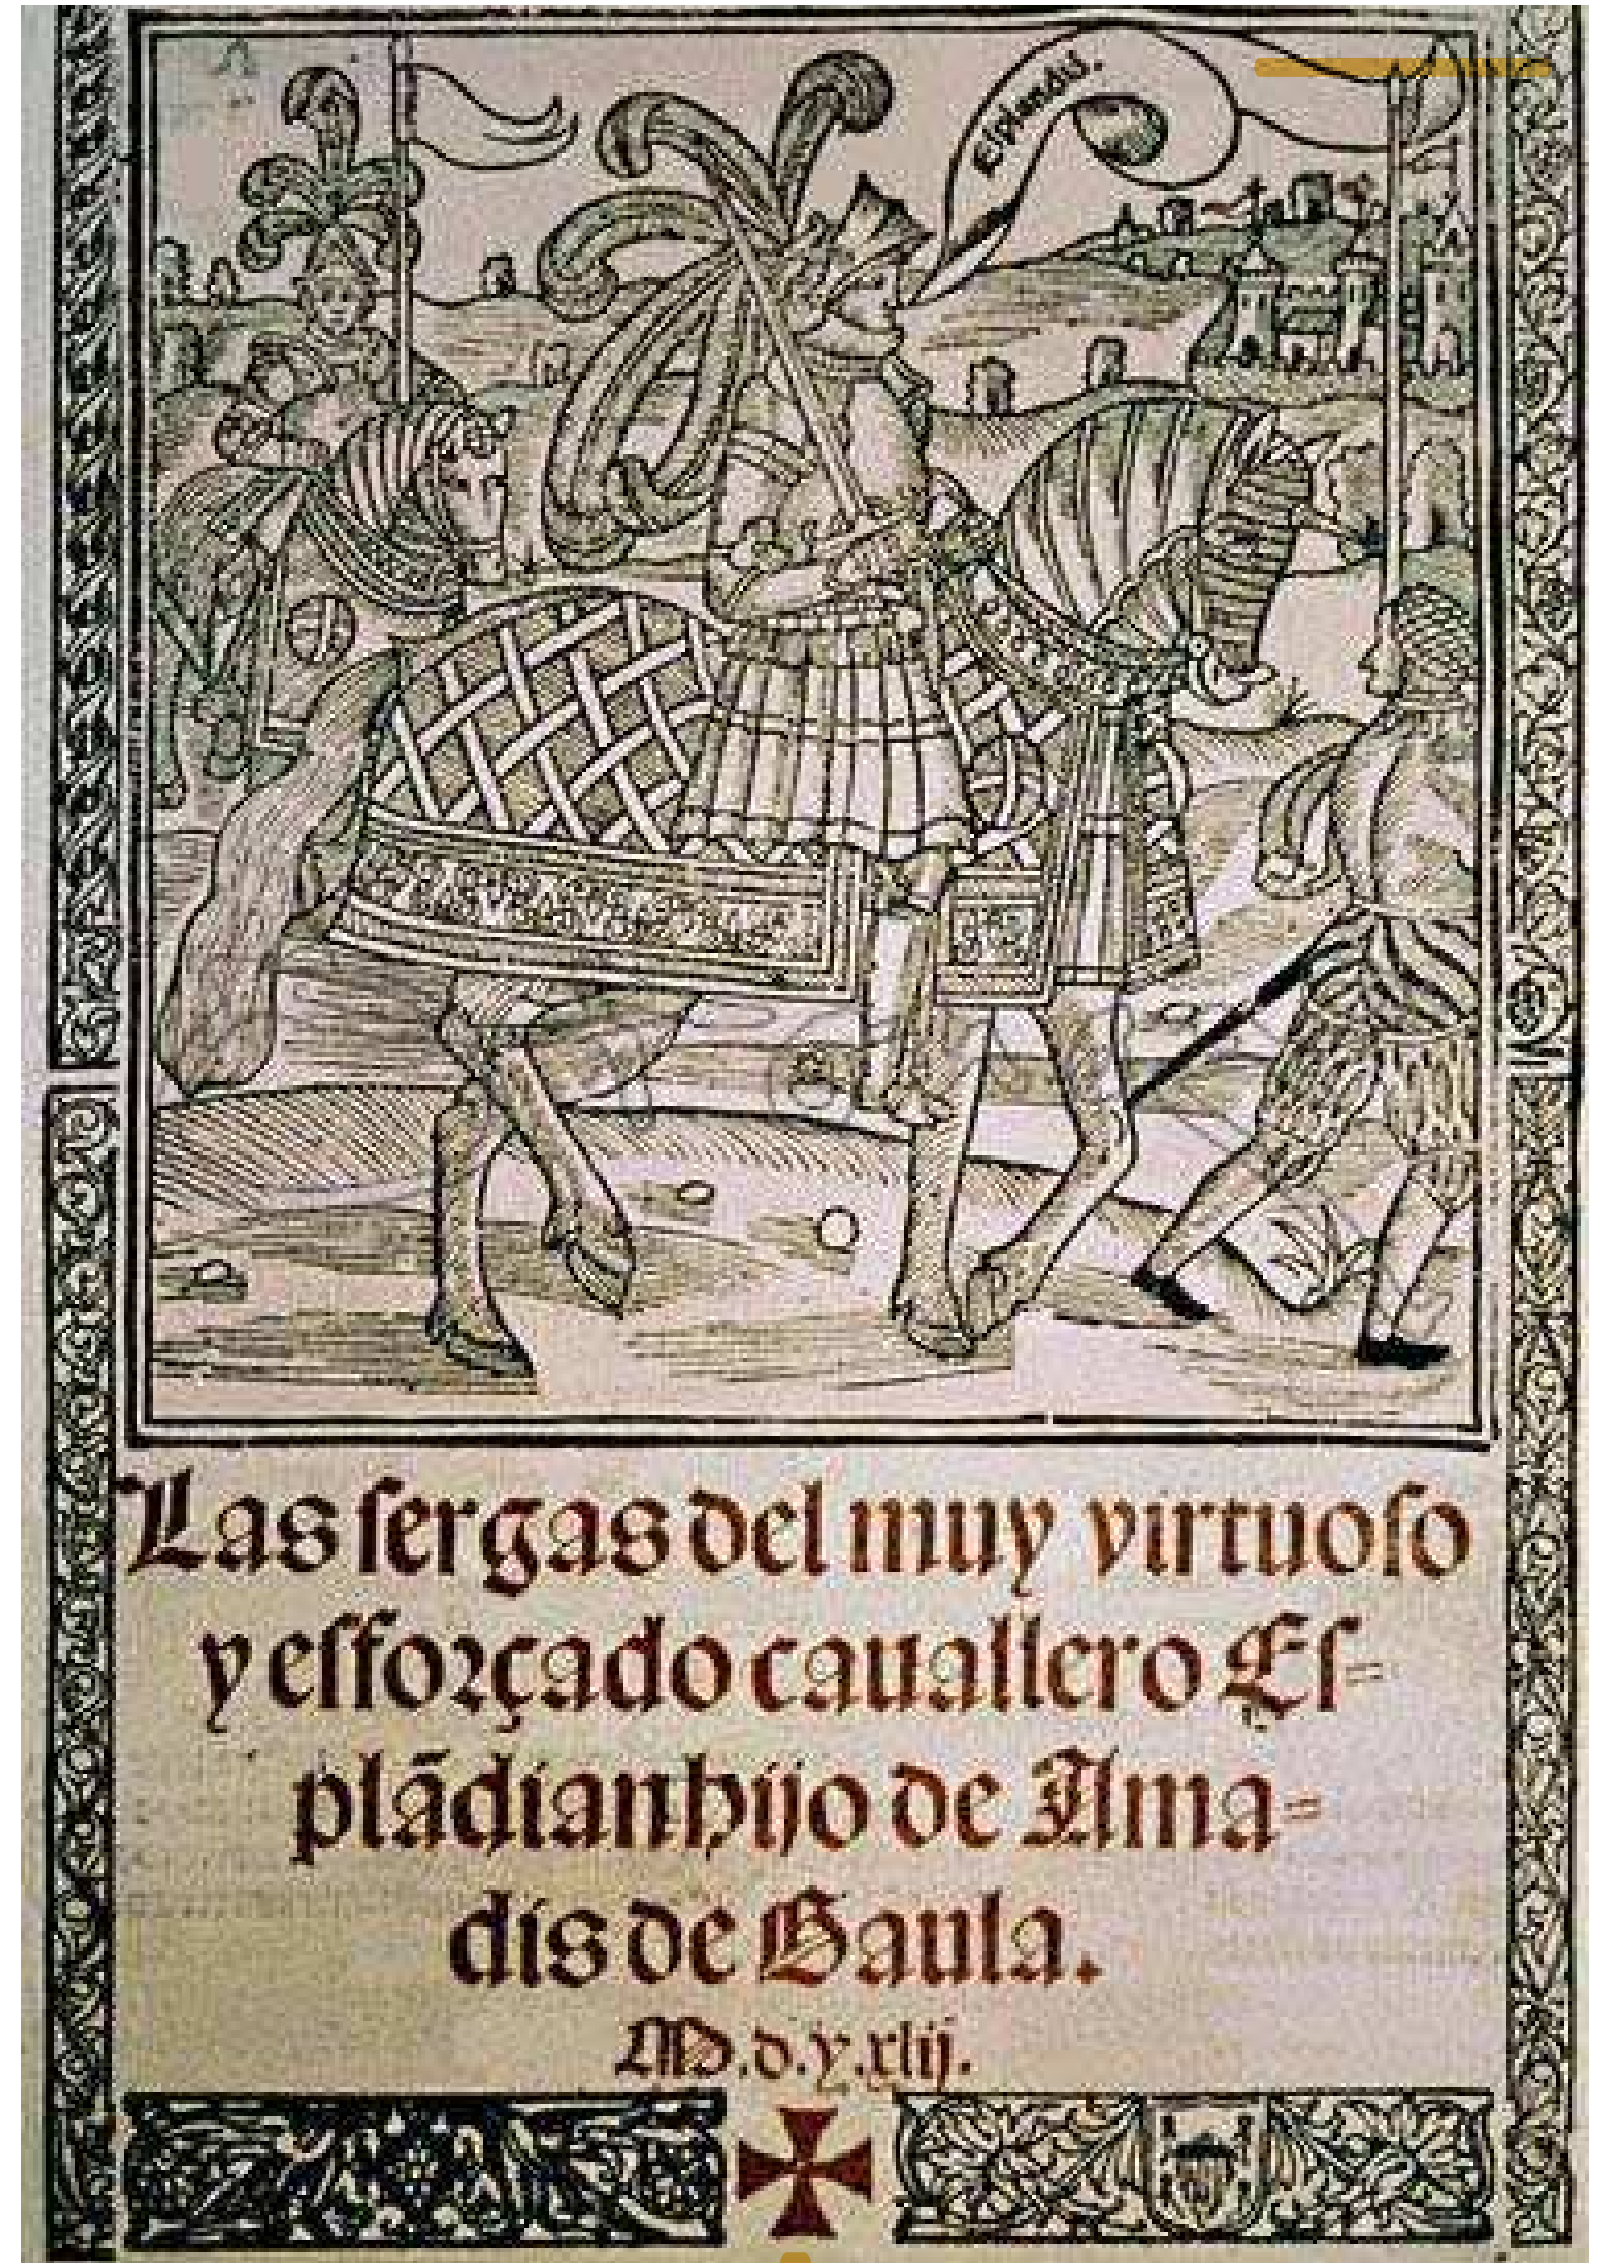 Las sergas del muy virtuoso
y esforçado cauallero Es=
plãdian hijo de Ama=
dis de Gaula.
M.d.y.xlij.